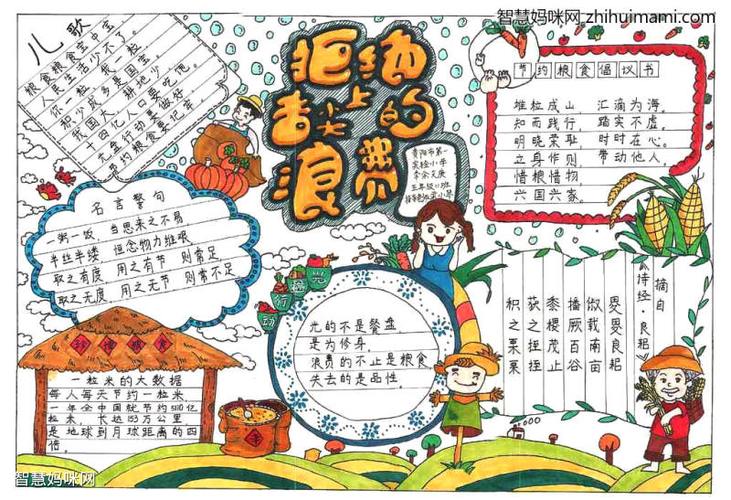 智慧妈咪网 zhihuimami.com
儿歌
粮食粮食宝中宝
人民生活少不了。
你一粒，我一粒
积少成多是国宝
我国大，耕地少
十四亿人口要吃饱
光盘行动要做好
节约粮食要记牢。
拒绝
舌尖上的
浪费
贵阳市第一
实验小学
五年级八班
节约粮食倡议书
堆粒成山 汇滴为海。
知而践行， 踏实不虚
明晓荣耻 时时在心。
立身作则 带动他人，
惜粮惜物
兴国兴家。
名言警句
一粥一饭，当思来之不易
半丝半缕 恒念物力维艰
取之有度 用之有节 则常足
取之无度，用之无节 则常不足
光盘行动
光的不是餐盘
是为修身，
浪费的不止是粮食
失去的是品性。
摘自
《诗经·良耜
畟畟良耜
俶载南亩
播厥百谷
黍稷茂止
获之挃挃
积之栗栗
珍惜粮食
一粒米的大数据
每人每天节约一粒米
一年全中国就节约5110亿
粒米，长达153万公里
是地球到月球距离的四
倍。
米
智慧妈咪网